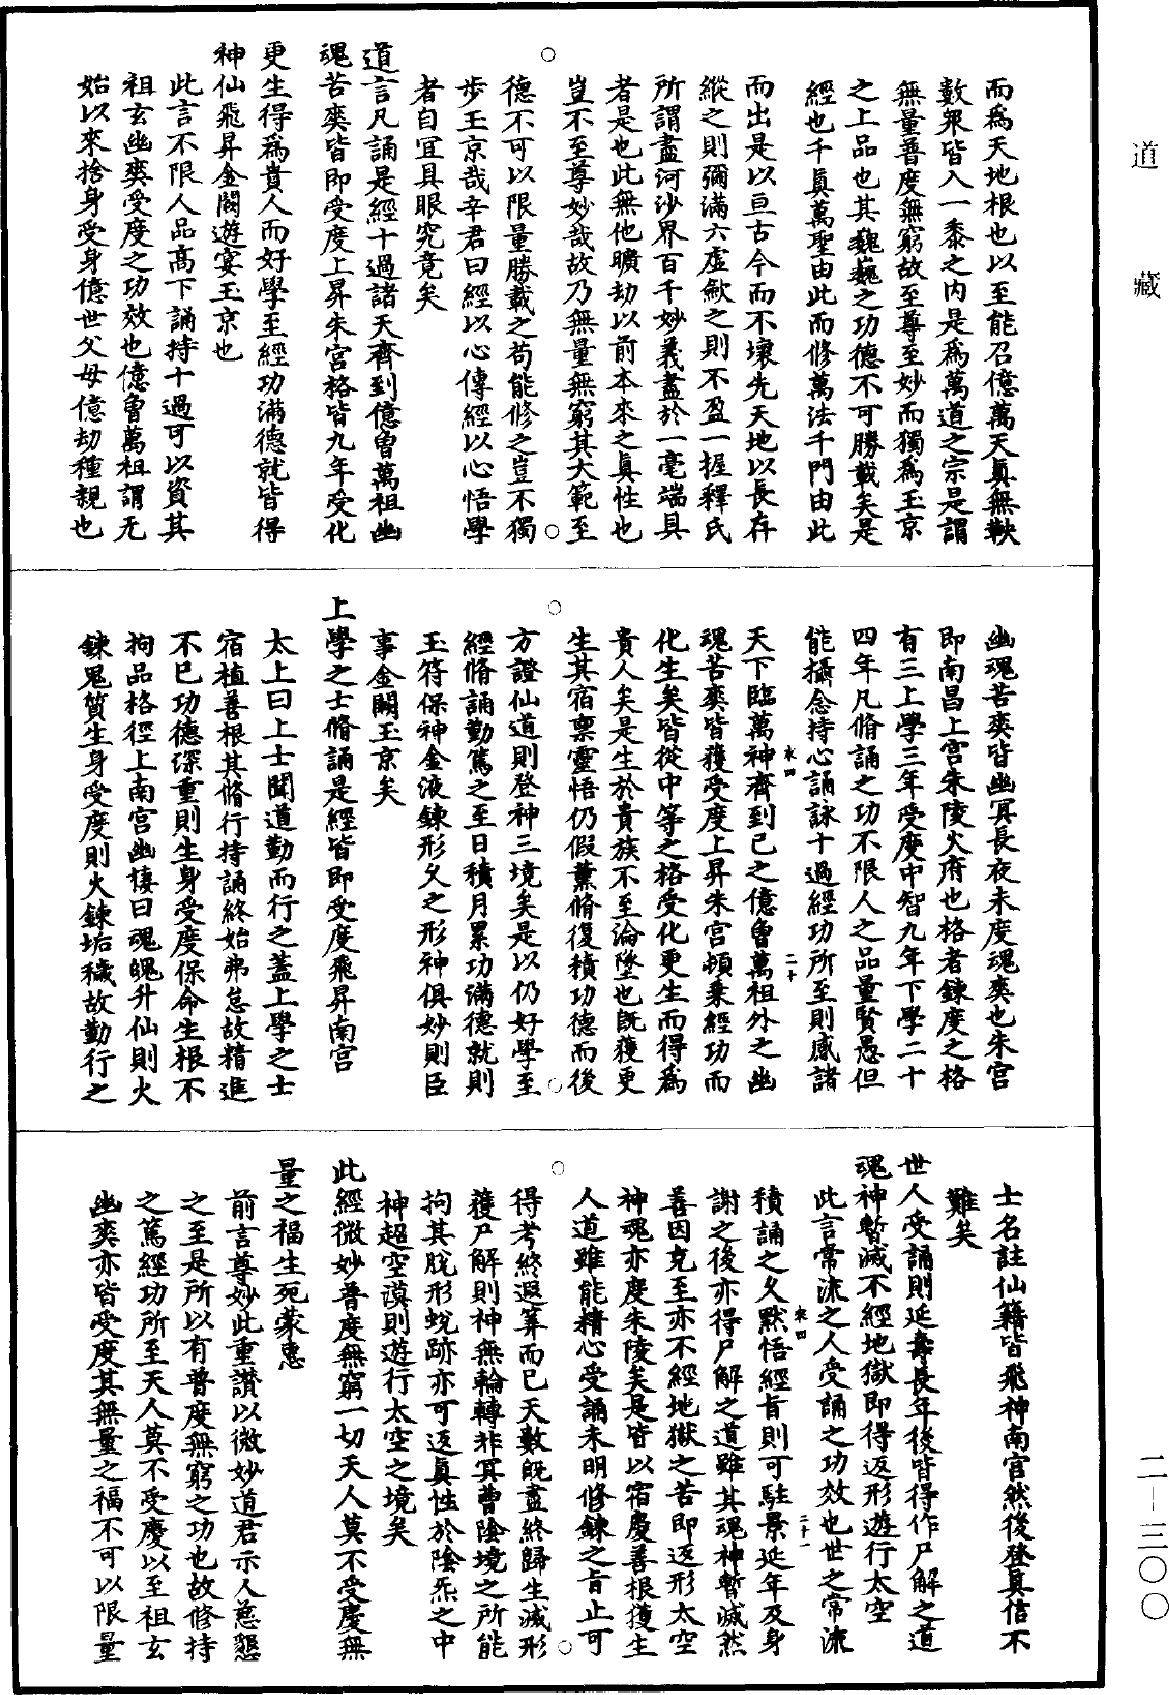 道藏
而爲天地根也以至能召億萬天真無鞅
數衆皆入一黍之內是爲萬道之宗是謂
無量普度無窮故至尊至妙而獨爲玉京
之上品也其巍巍之功德不可勝載矣是
經也千真萬聖由此而修萬法千門由此
而出是以亘古今而不壞先天地以長存
縱之則彌滿六虛歛之則不盈一握釋氏
所謂盡河沙界百千妙義盡於一毫端具
者是也此無他曠劫以前本來之真性也
豈不至尊妙哉故乃無量無窮其大範至
德不可以限量勝載之苟能修之豈不獨
步玉京哉辛君曰經以心傳經以心悟學
者自宜具眼究竟矣
道言凡誦是經十過諸天齊到億曾萬祖幽
魂苦爽皆即受度上昇朱宮格皆九年受化
更生得爲貴人而好學至經功滿德就皆得
神仙飛昇金闕遊宴玉京也
此言不限人品高下誦持十過可以資其
祖玄幽爽受度之功效也億曾萬祖謂无
始以來捨身受身億世父母億劫種親也
幽魂苦爽皆幽冥長夜未度魂爽也朱宮
即南昌上宮朱陵火府也格者鍊度之格
有三上學三年受度中智九年下學二十
四年凡脩誦之功不限人之品量賢愚但
能攝念持心誦詠十過經功所至則感諸
來四 二十
天下臨萬神齊到已之億曾萬祖外之幽
魂苦爽皆獲受度上昇朱宮頓乗經功而
化生矣皆從中等之格受化更生而得爲
貴人矣是生於貴族不至淪墜也既獲更
生其宿禀靈悟仍假薰脩復積功德而後
方證仙道則登神三境矣是以仍好學至
經脩誦勤篤之至日積月累功滿德就則
玉符保神金液鍊形乆之形神俱妙則臣
事金闕玉京矣
上學之士脩誦是經皆即受度飛昇南宮
太上曰上士聞道勤而行之蓋上學之士
宿植善根其脩行持誦終始弗怠故精進
不已功德深重則生身受度保命生根不
拘品格徑上南宮幽棲曰魂魄升仙則火
鍊鬼質生身受度則火鍊垢穢故勤行之
士名註仙籍皆飛神南宮然後登真信不
難矣
世人受誦則延壽長年後皆得作尸解之道
魂神暫滅不經地獄即得返形遊行太空
此言常流之人受誦之功效也世之常流
積誦之乆默悟經旨則可駐景延年及身
來四 二十一
謝之後亦得尸解之道雖其魂神暫滅然
善因克至亦不經地獄之苦即返形太空
神魂亦度朱陵矣是皆以宿慶善根獲生
人道雖能精心受誦未明修鍊之旨止可
得考終遐筭而已天數旣盡終歸生滅形
獲尸解則神無輪轉非冥曹陰境之所能
拘其脫形蛻跡亦可返真性於陰炁之中
神超空漠則遊行太空之境矣
此經微妙普度無窮一切天人莫不受慶無
量之福生死蒙惠
前言尊妙此重讃以微妙道君示人慈懇
之至是所以有普度無窮之功也故修持
之篤經功所至天人莫不受慶以至祖玄
幽爽亦皆受度其無量之福不可以限量
二—三〇〇